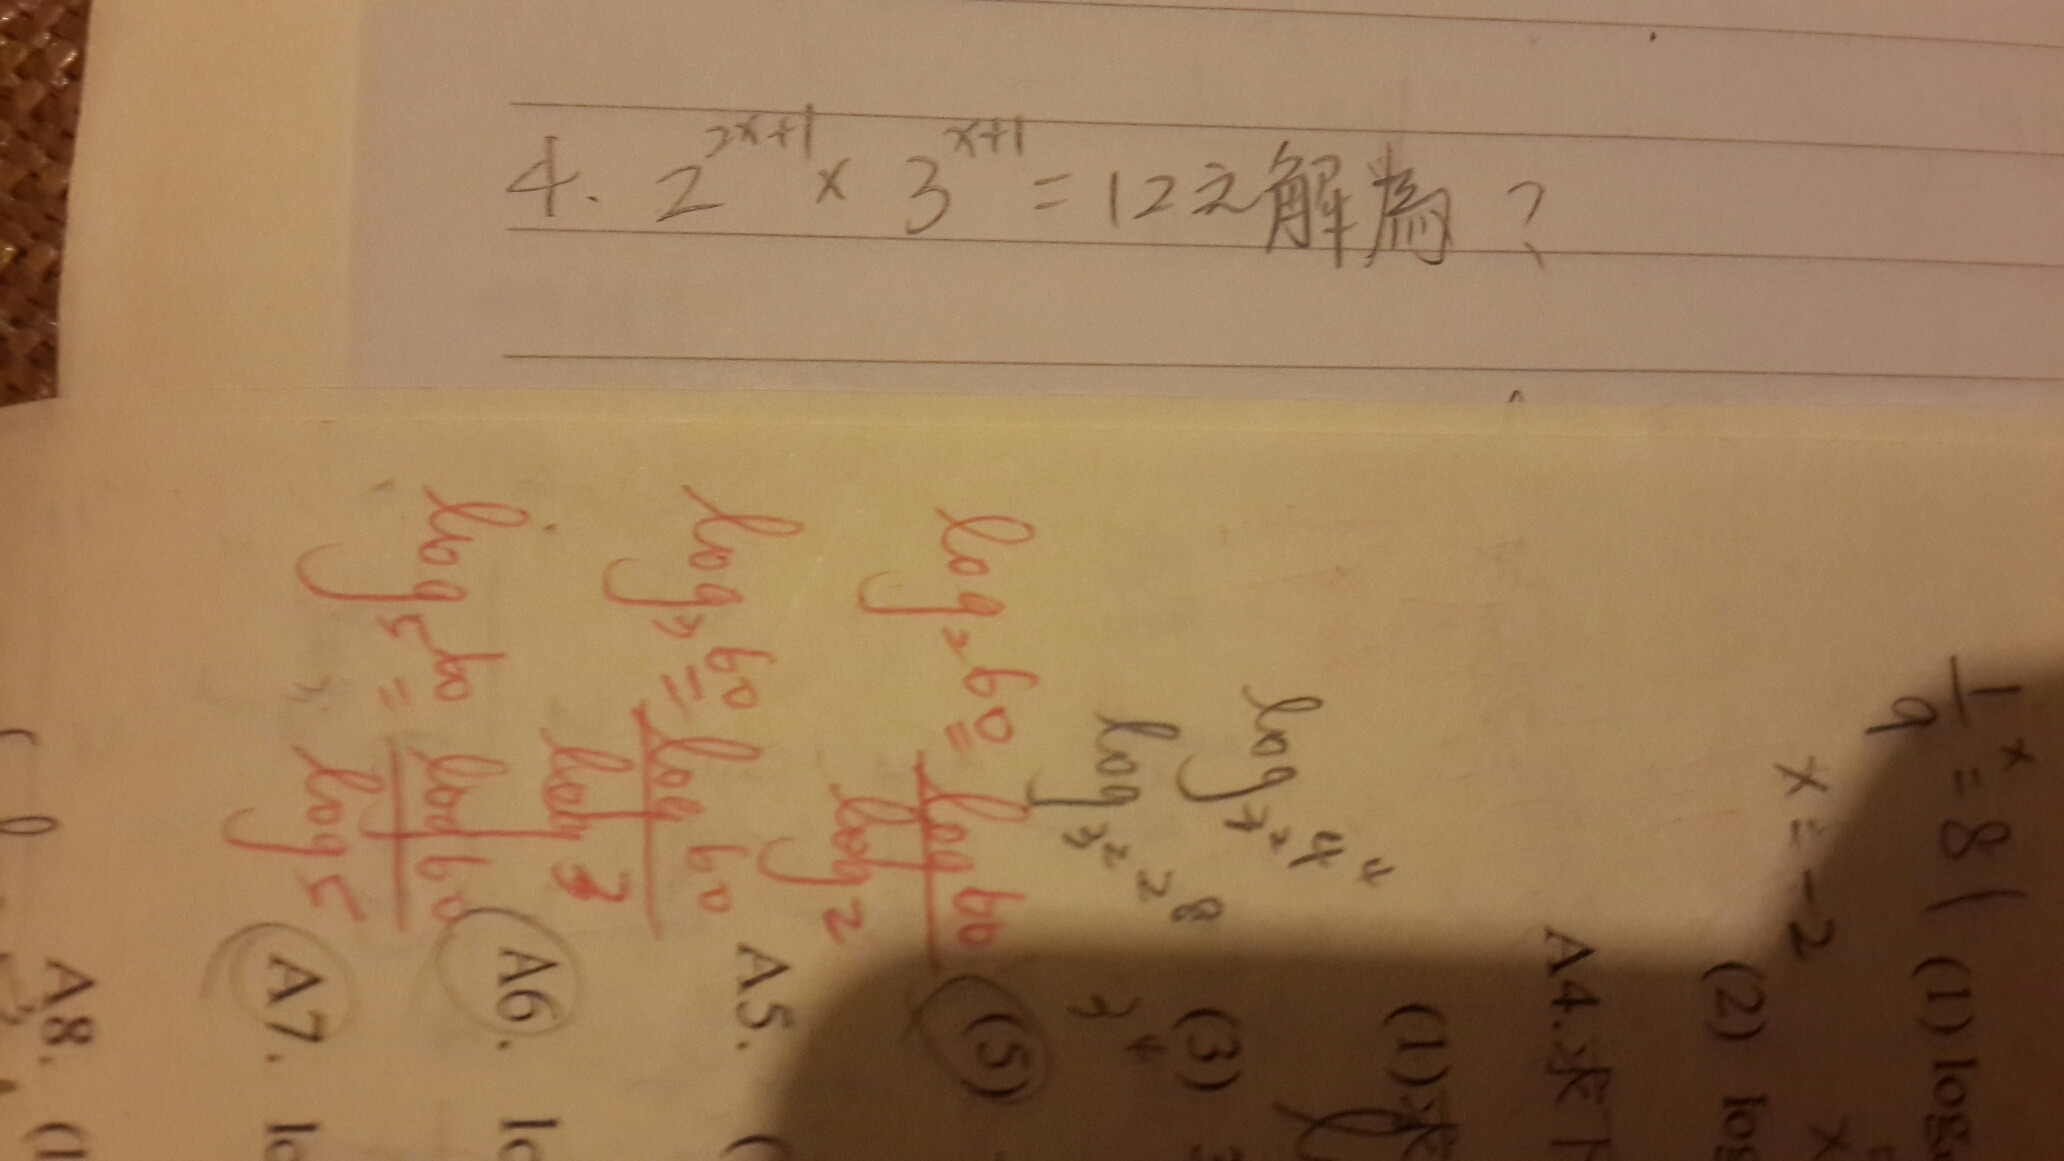 4. 2^{2x+1} × 3^{x+1} = 12之解為?
1/9^x = 81
x = -2
(1) log
(2) log
A4.求下
(1)求
log_{3^2} 4^4
log_{3^2} 2^8
(3) 3
3^4
(5)
log_2 60 = log 60 / log 2
A5. (
log_3 60 = log 60 / log 3
A6. lo
log_5 60 = log 60 / log 5
A7. lo
A8. (1